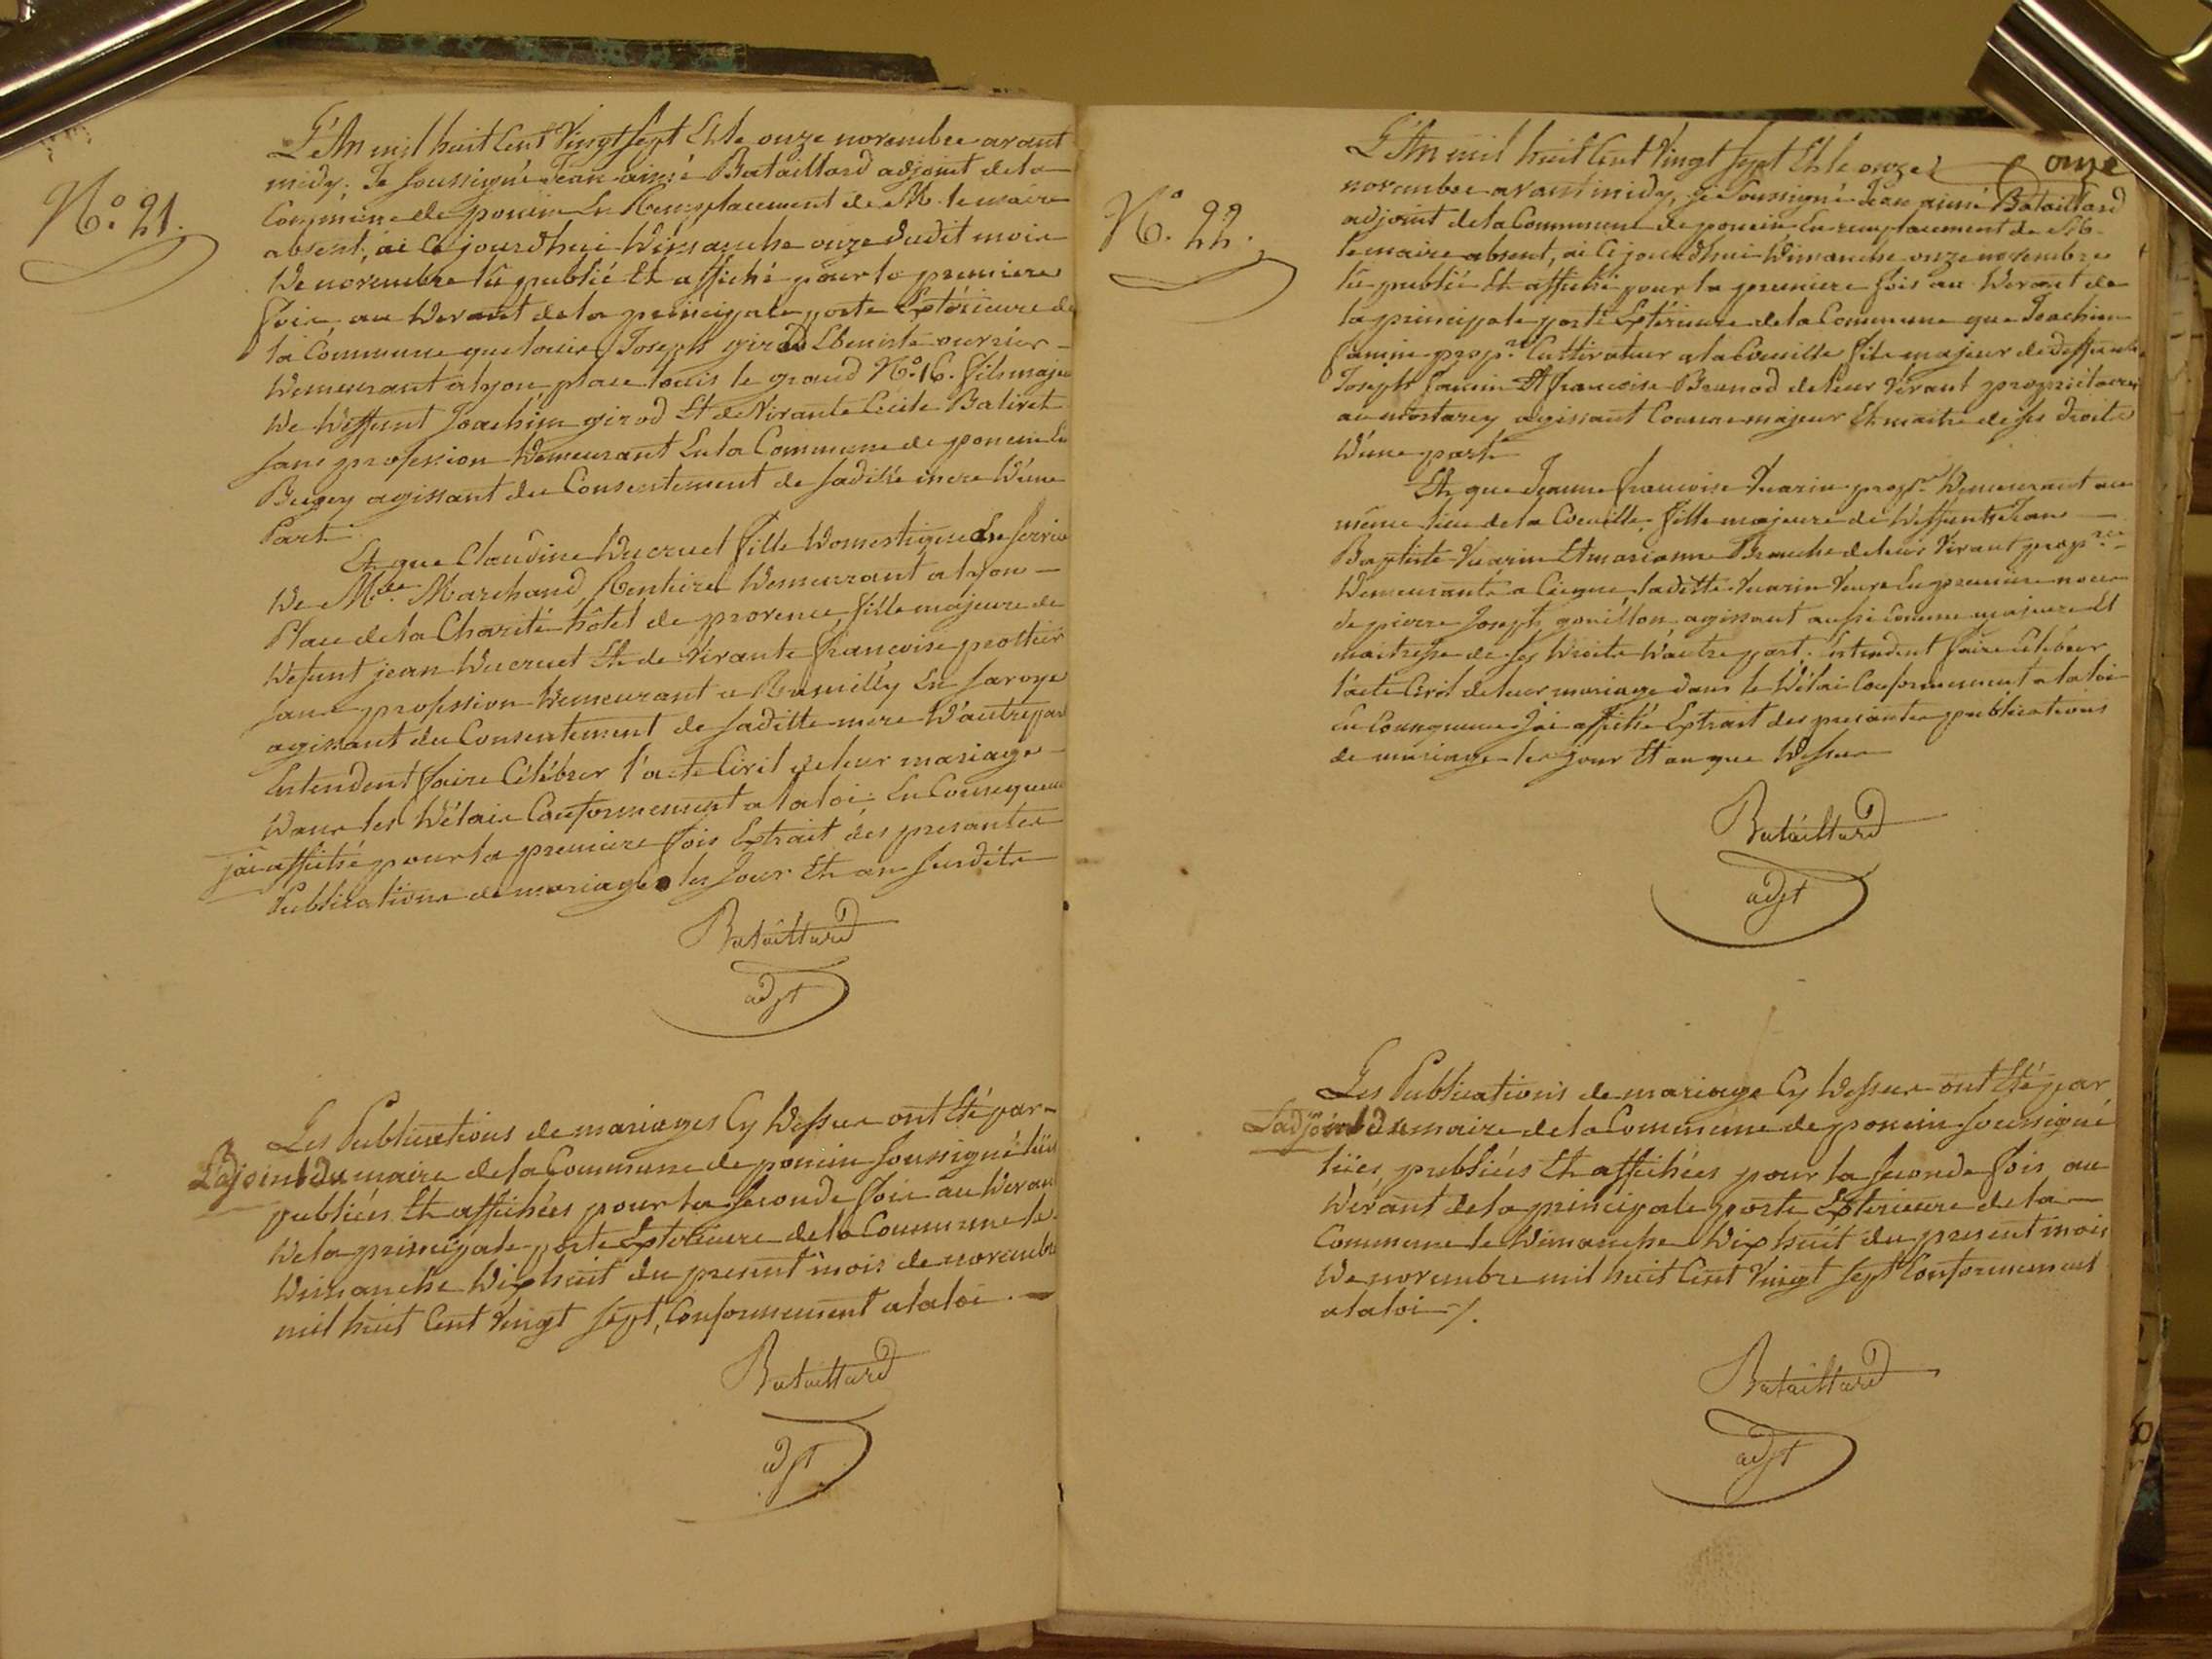 N.° 21.
L'An mil huit Cent Vingt Sept Et le onze novembre avant
midy. Je Soussigné Jean aimé Bataillard adjoint de la
Commune de poncin En Remplacement de M. le maire
absent, ai Ce jourdhui Dimanche onze dudit mois
De novembre lû publié Et affiché pour la premiere
fois, au Devant de la principale porte Extérieure de
la Commune que louis Joseph girod Ebeniste ouvrier
Demeurant a lyon, place louis le grand N.° 16. fils majeur
De Deffunt Joachim girod Et de Vivante Cecile Balivet
sans profession Demeurant En la Commune de poncin En
Bugey agissant du Consentement de sadite mere D'une
Part
Et que Claudine Ducruet fille Domestique au service
De Mde. Marchand, Rentiere Demeurant a lyon
Place de la Charité hôtel de provence, fille majeure de
Defunt jean Ducruet Et de Vivante francoise
sans profession Demeurant a Rumilly En Savoye
agissant du Consentement de saditte mere D'autre part
Entendent faire Célébrer l'acte Civil de leur mariage
Dans les Délais Conformement a la loi; En Consequence
j'ai affiché pour la premiere fois Extrait des presantes
Publications de mariages les Jour Et an susdits
Bataillard
adjt
Les Publications de mariages Cy Dessus ont Eté par
L'adjoint du maire de la Commune de poncin soussigné lües
publiées Et affichées pour la seconde fois au Devant
De la principale porte Extérieure de la Commune le
Dimanche Dix huit du present mois de novembre
mil huit Cent Vingt sept, Conformement a la loi.
Bataillard
adjt
onze
N.° 22.
L'An mil huit Cent Vingt sept Et le onze
novembre avant midy, je Soussigné Jean aimé Bataillard
adjoint de la Commune de poncin En remplacement de M.
le maire absent, ai Ce jourdhui Dimanche onze novembre
lû publié Et affiché pour la premiere fois au Devant de
la principale porte Extérieure de la Commune que Joachim
prop.re Cultivateur a la Coeuille fils majeur de deffunts
Joseph Et francoise Brunod de leur Vivant propriétaires
au mortarey agissant Comme majeur Et maitre de ses Droits
D'une part
Et que Jeanne francoise Vuarin prop.re Demeurant au
même lieu de la Coeuille, fille majeure de Deffunts Jean
Baptiste Vuarin Et marianne de leur Vivant prop.res
Demeurants a ladette Vuarin Veuve En premiere noces
de pierre Joseph gouillon, agissant aussi Comme majeure Et
maitresse de ses Droits D'autre part. Entendent faire Celebrer
l'acte Civil de leur mariage dans le Délai Conformement a la loi
En Consequence J'ai affiché Extrait des presantes publications
de mariage les jour Et an que Dessus
Bataillard
adjt
Les Publications de mariage Cy Dessus ont Eté par
L'adjoint du maire de la Commune de poncin soussigné
lües, publiées Et affichées pour la seconde fois au
Devant de la principale porte Exterieure de la
Commune le Dimanche Dix huit du present mois
De novembre mil huit Cent Vingt sept Conformement
a la loi ./.
Bataillard
adjt